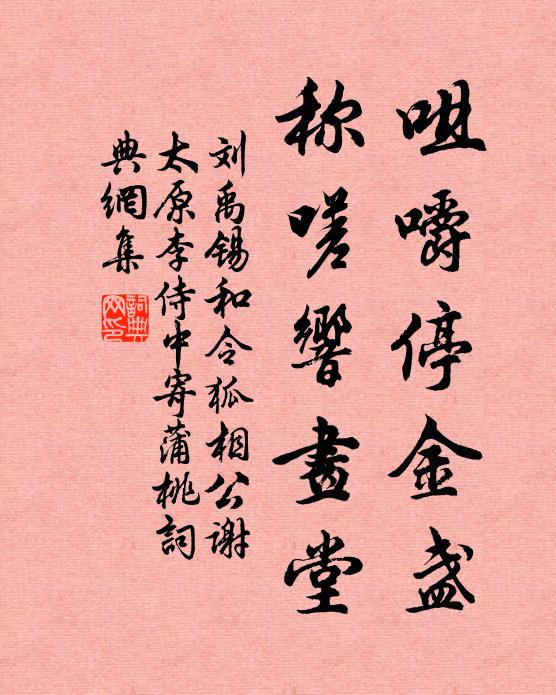 咀嚼停金盏
称嗟響畫堂
刘禹锡和令狐相公谢
太原李侍中寄蒲桃詞
典網集
詞典网印